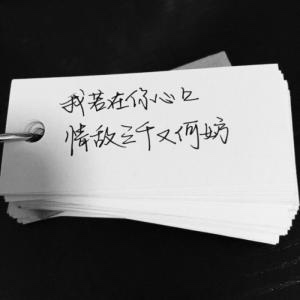 我若在你心口
情敌三千又何妨